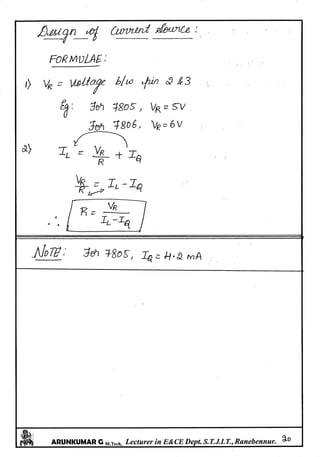 Design of Current Source:
FORMULAE:
1) V_R = Voltage b/w pin 2 & 3
Eg: For 7805, V_R = 5V
For 7806, V_R = 6V
2) I_L = V_R/R + I_Q
V_R/R = I_L - I_Q
∴ R = V_R/(I_L - I_Q)
NOTE: For 7805, I_Q = 4.2 mA
ARUNKUMAR G M.Tech, Lecturer in E&CE Dept. S.T.J.I.T., Ranebennur. 20